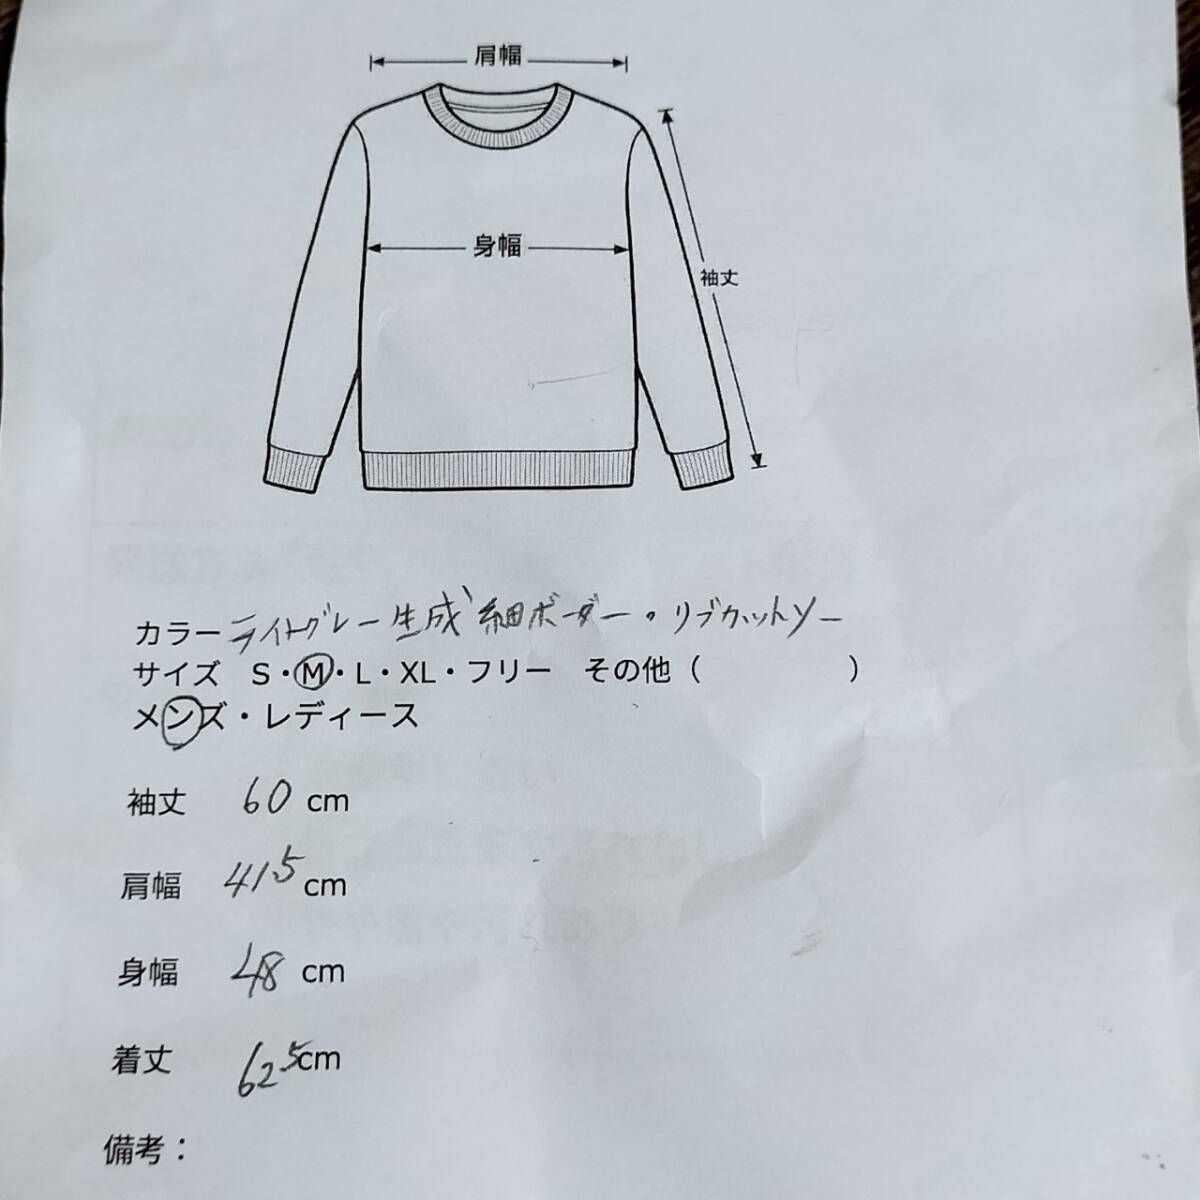 肩幅
身幅
袖丈
カラー ライトグレー生成 細ボーダー・リブカットソー
サイズ S・M・L・XL・フリー その他（ ）
メンズ・レディース
袖丈 60 cm
肩幅 41.5 cm
身幅 48 cm
着丈 62.5 cm
備考：